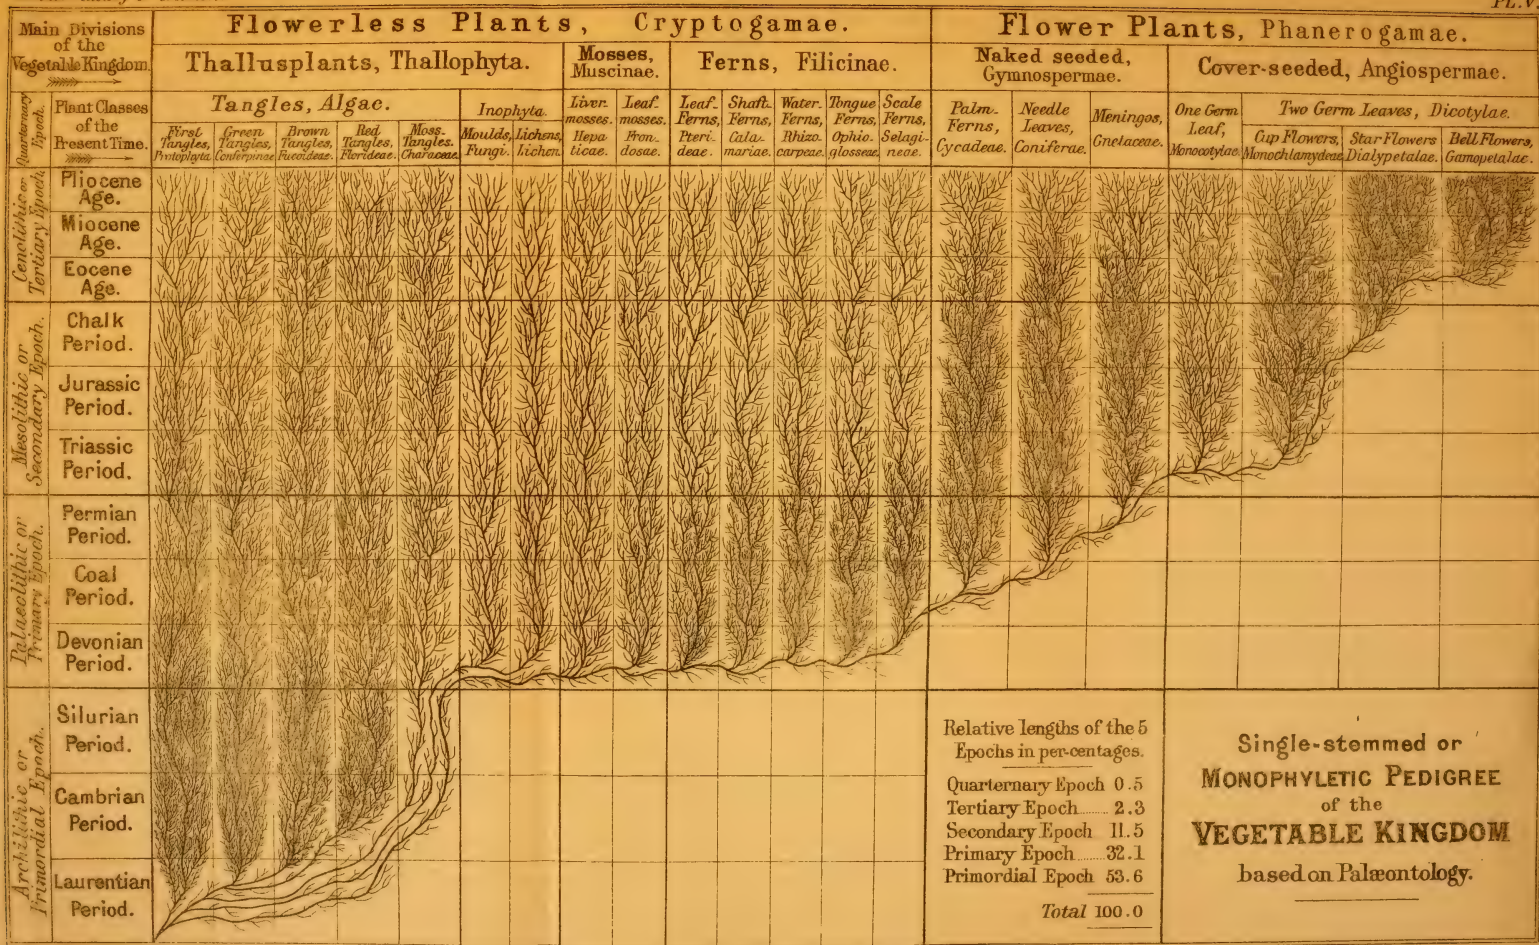 PL.V.
Main Divisions
of the
Vegetable Kingdom.
Flowerless Plants, Cryptogamae.
Flower Plants, Phanerogamae.
Thallusplants, Thallophyta.
Mosses,
Muscinae.
Ferns, Filicinae.
Naked seeded,
Gymnospermae.
Cover-seeded, Angiospermae.
Quarternary
Epoch.
Plant Classes
of the
Present Time.
Tangles, Algae.
Inophyta.
First
Tangles,
Protophyta.
Green
Tangles,
Confervinae
Brown
Tangles,
Fucoideae.
Red
Tangles,
Florideae.
Moss-
Tangles.
Characeae.
Moulds,
Fungi.
Lichens,
Lichen.
Liver-
mosses.
Hepa
ticae.
Leaf-
mosses.
Fron-
dosae.
Leaf-
Ferns,
Pteri-
deae.
Shaft-
Ferns,
Cala-
mariae.
Water-
Ferns,
Rhizo-
carpeae.
Tongue
Ferns,
Ophio-
glosseae.
Scale
Ferns,
Selagi-
neae.
Palm-
Ferns,
Cycadeae.
Needle
Leaves,
Coniferae.
Meningos,
Gnetaceae.
One Germ
Leaf,
Monocotylae.
Two Germ Leaves, Dicotylae.
Cup Flowers,
Monochlamydeae
Star Flowers
Dialypetalae.
Bell Flowers,
Gamopetalae.
Cenolithic or
Tertiary Epoch.
Pliocene
Age.
Miocene
Age.
Eocene
Age.
Mesolithic or
Secondary Epoch.
Chalk
Period.
Jurassic
Period.
Triassic
Period.
Palaeolithic or
Primary Epoch.
Permian
Period.
Coal
Period.
Devonian
Period.
Archilithic or
Primordial Epoch.
Silurian
Period.
Cambrian
Period.
Laurentian
Period.
Relative lengths of the 5
Epochs in per-centages.
Quarternary Epoch 0.5
Tertiary Epoch........ 2.3
Secondary Epoch 11.5
Primary Epoch........32.1
Primordial Epoch 53.6
Total 100.0
Single-stemmed or
MONOPHYLETIC PEDIGREE
of the
VEGETABLE KINGDOM
based on Palæontology.